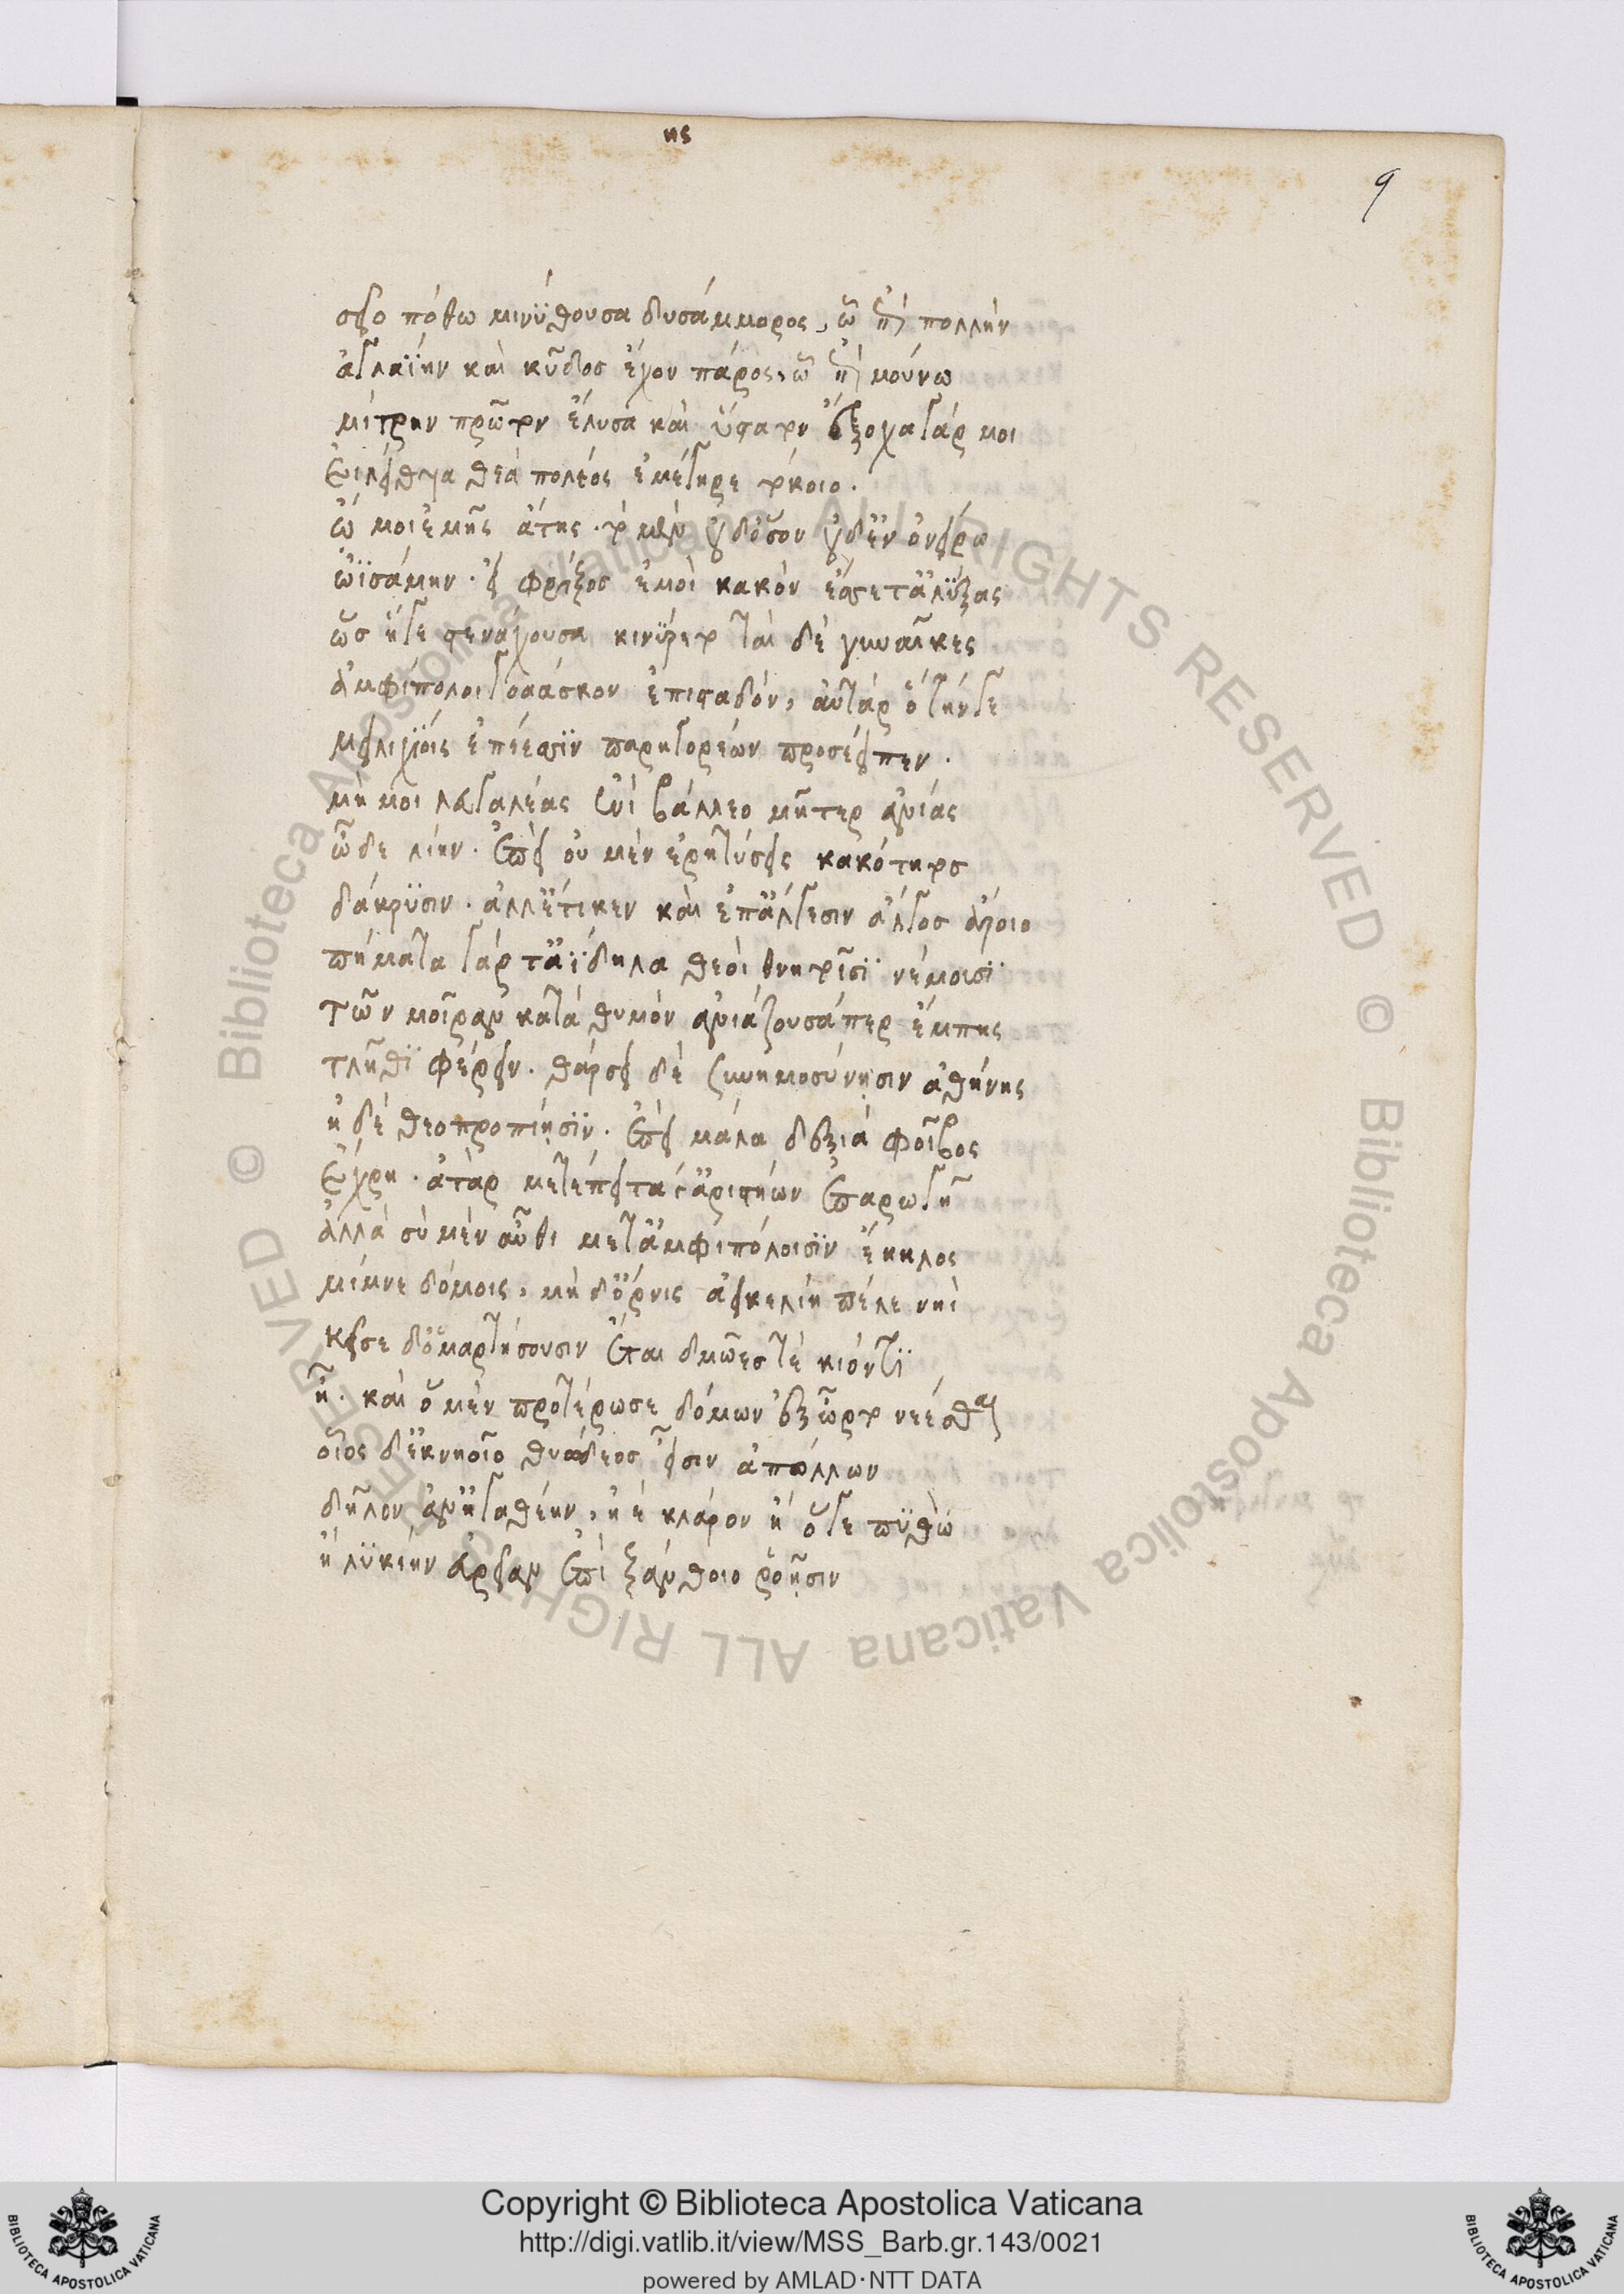 ης
9
σεῖο πόθω μινύθουσα δυσάμμορος, ὦ ἔπι πολλὴν
ἀγλαΐην καὶ κῦδος ἔχον πάρος, ὦ ἔπι μούνω
μίτρην πρῶτον ἔλυσα καὶ ὕστατον ἔξοχα γάρ μοι
Εἰλείθυια θεὰ πολέος ἐμέγηρε τόκοιο.
ὤ μοι ἐμῆς ἄτης. τὸ μὲν οὐδ' ὅσον οὐδ' ἐν ὀνείρω
ὠϊσάμην. εἰ φρίξος ἐμοὶ κακὸν ἔσσετ' ἀλύξας
ὣς ἥγε στενάχουσα κινύρετο ταὶ δὲ γυναῖκες
ἀμφίπολοι γοάασκον ἐπισταδόν, αὐτὰρ ὁ τήνγε
μειλιχίοις ἐπέεσσιν παρηγορέων προσέειπεν.
μή μοι λευγαλέας ἐνιβάλλεο μῆτερ ἀνίας
ὧδε λίην. ἐπεὶ οὐ μὲν ἐρητύσεις κακότητος
δάκρυσιν. ἀλλ' ἔτι κεν καὶ ἐπ' ἄλγεσιν ἄλγος ἄροιο
πήματα γάρ τ' ἀΐδηλα θεοὶ θνητοῖσι νέμουσι
τῶν μοῖραν κατὰ θυμὸν ἀνιάζουσά περ ἔμπης
τλῆθι φέρειν. θάρσει δὲ συνημοσύνῃσιν ἀθήνης
ἠδὲ θεοπροπίῃσιν. ἐπεὶ μάλα δεξιὰ φοῖβος
ἔχρη. ἀτὰρ μετέπειτά γ' ἀριστήων ἐπαρωγῆ
ἀλλὰ σὺ μὲν αὖθι μετ' ἀμφιπόλοισιν ἕκηλος
μίμνε δόμοις, μὴ δ' ὄρνις ἀεικελίη πέλε νηὶ
κεῖσε δ' ὁμαρτήσουσιν ἔται δμῶές τε κιόντι
ἦ. καὶ ὃ μὲν προτέρωσε δόμων ἐξῶρτο νέεσθαι
οἷος δ' ἐκ νηοῖο θυώδεος εἶσιν ἀπόλλων
δῆλον ἀν' ἠγαθέην, ἠὲ κλάρον ἢ ὅγε πυθὼ
ἢ λυκίην εὐρεῖαν ἐπὶ ξάνθοιο ῥοῇσιν
Copyright © Biblioteca Apostolica Vaticana
http://digi.vatlib.it/view/MSS_Barb.gr.143/0021
powered by AMLAD·NTT DATA